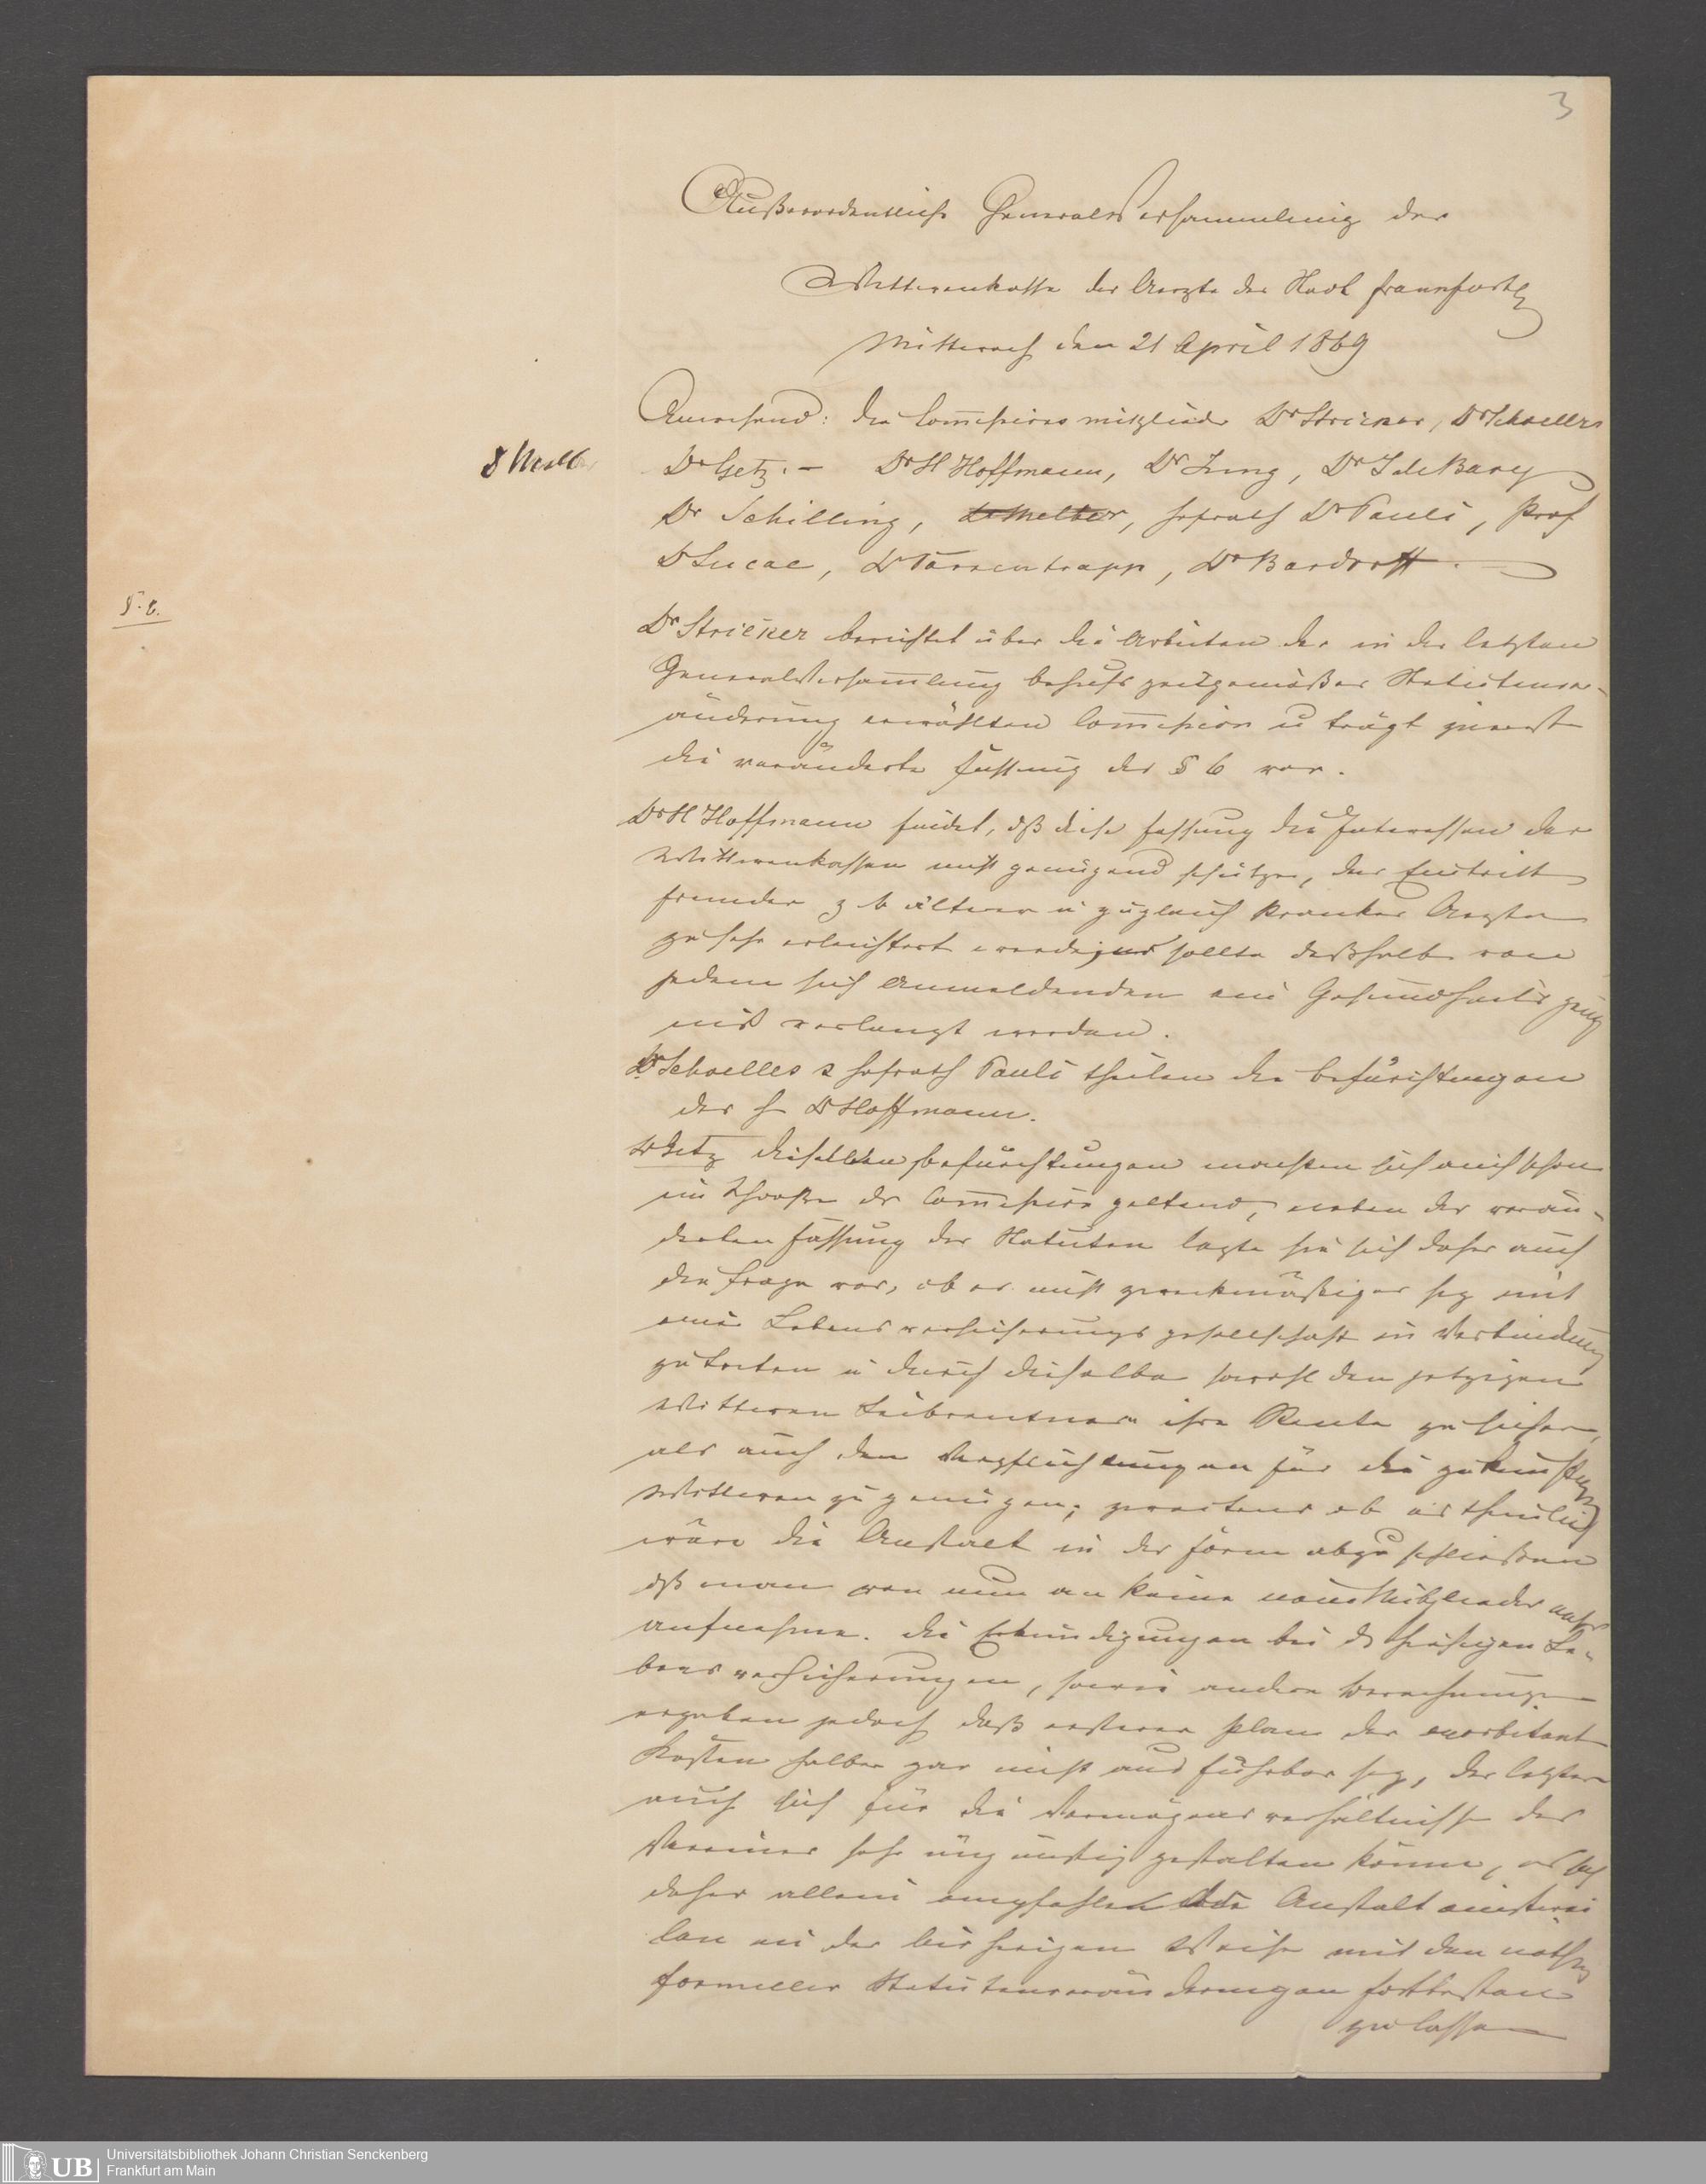 3
Außerordentliche Generalversammlung der
Wittwenkasse der Aerzte der Stadt Frankfurt
Mittwoch den 21 April 1869
Anwesend: die Com̅issionsmitglieder Dr Stricker, Dr Schoelles
Dr Melber
Dr Getz. – Dr H Hoffmann, Dr Jung, Dr J de Bary
Dr Schilling, Dr Melber, Hofrath Dr Pauli, Prof
Dr Lucae, Dr Varrentrapp, Dr Bardorff.
§. 6.
Dr Stricker berichtet über die Arbeiten der in der letzten
Generalversam̅lung behufs zeitgemäßer Statutenver-
änderung erwählten Com̅ission u trägt zuerst
die veränderte Fassung des § 6 vor.
Dr H Hoffmann findet, dß diese Fassung die Interessen der
Wittwenkassen nicht genügend schütze, der Eintritt
fremder z b älterer u zugleich kranker Aerzte
zu sehr erleichtert werde, sollte deßhalb von
jedem sich Anmeldenden ein Gesundheitszeug
niß verlangt werden.
Dr Schoelles & Hofrath Pauli theilen die Befürchtungen
des H Dr Hoffmann.
Dr Getz dieselben Befürchtungen machten sich auch schon
im Schooße der Com̅ission geltend, neben der verän-
derten Fassung der Statuten legte sie sich daher auch
die Frage vor, ob es nicht zweckmäßiger sey mit
einer Lebensversicherungsgesellschaft in Verbindung
zu treten u durch dieselbe sowohl den jetzigen
Wittwen Leibrentner ihre Rente zu sichern,
als auch den Verpflichtungen für die zukünftigen
Wittwen zu genügen; zweitens ob es thunlich
wäre die Anstalt in der Form abzuschließen
dß man von nun an keine neue Mitglieder mehr
aufnehme. Die Erkundigungen bei d hiesigen Le-
bensversicherungen, sowie andere Berechnungen
ergeben jedoch daß ersterer Plan der exorbitant
Kosten halber gar nicht ausführbar sey, der letztere
auch sich für die Vermögensverhältnisse des
Vereines sehr ungünstig gestalten könne, es sey
daher allein empfohlen die Anstalt einstwei
len in der bisherigen Weise mit den nöthigen
formellen Statutenveränderungen fortbestehen
zu lassen
UB Universitätsbibliothek Johann Christian Senckenberg
Frankfurt am Main